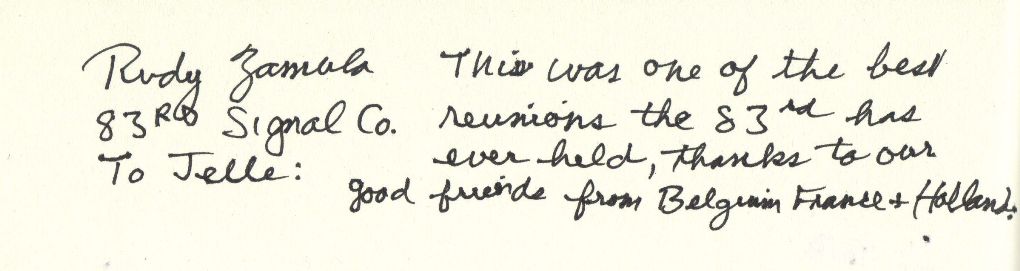 Rudy Zamula This was one of the best
83RD Signal Co. reunions the 83rd has
To Jelle: ever held, thanks to our
good friends from Belgium France + Holland.